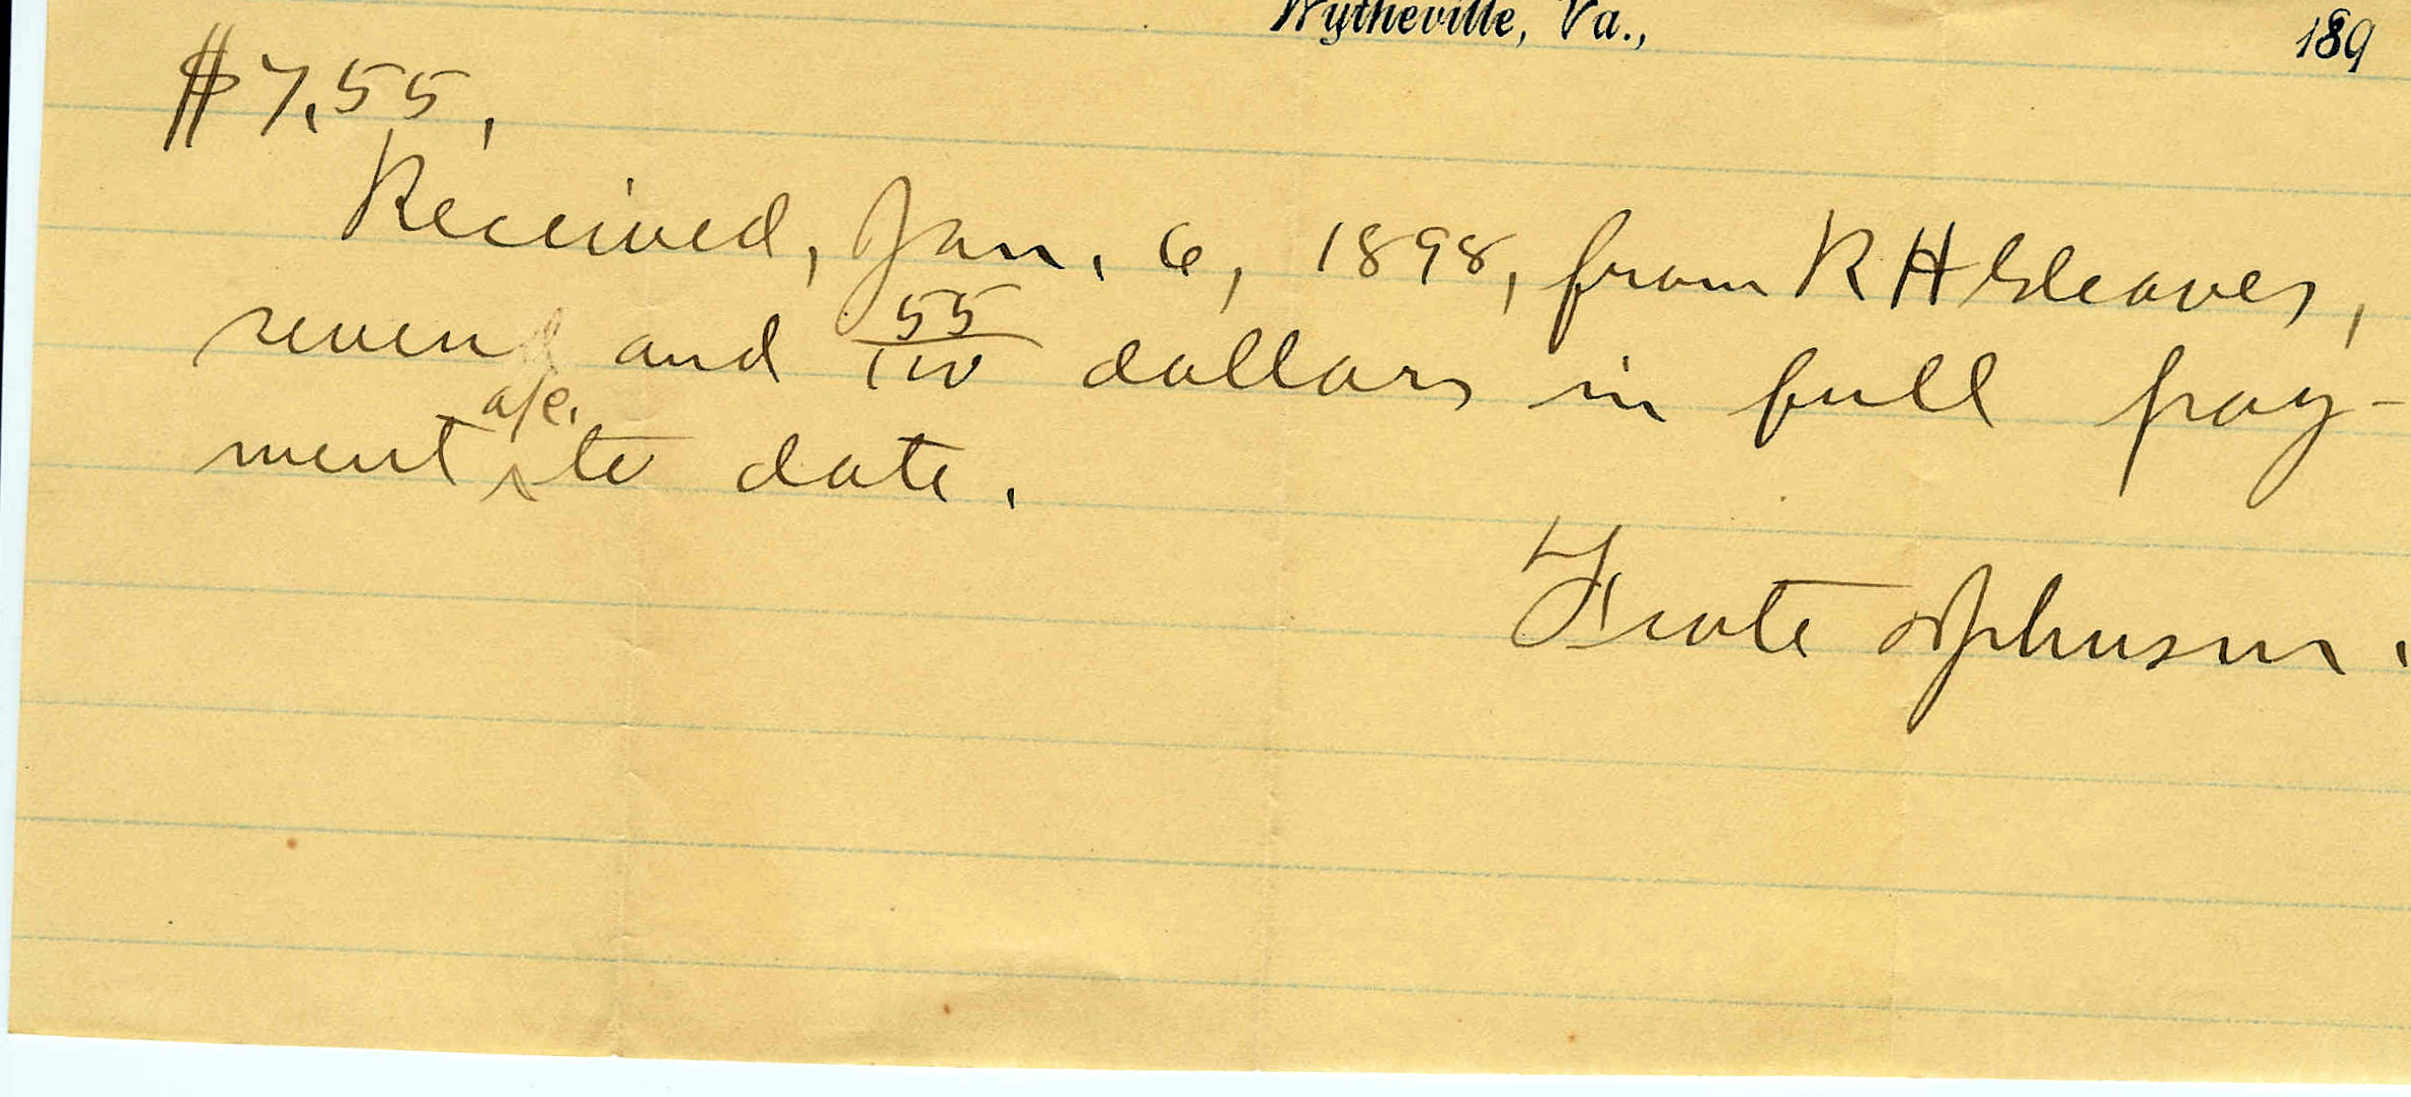 Wytheville, Va., 189
$7.55.
Received, Jan. 6, 1898, from R H Gleaves,
seven and 55/100 dollars in full pay-
a/c.
ment ^ to date.
Foote & Johnson.